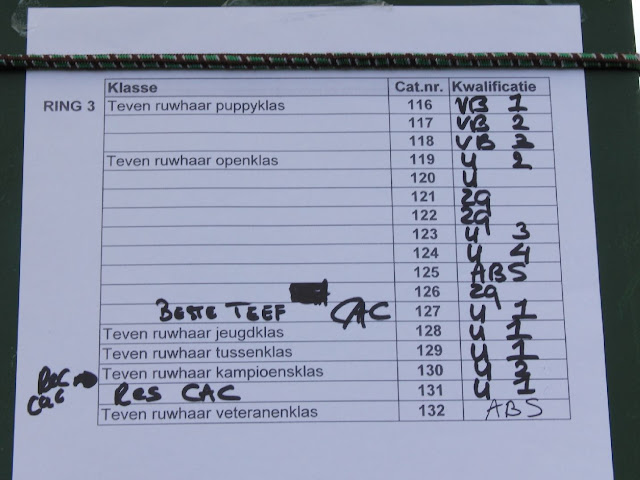 Klasse Cat.nr. Kwalificatie
RING 3 Teven ruwhaar puppyklas 116 VB 1
117 VB 2
118 VB 3
Teven ruwhaar openklas 119 U 2
120 U
121 ZG
122 ZG
123 U 3
124 U 4
125 ABS
126 ZG
BESTE TEEF CAC 127 U 1
Teven ruwhaar jeugdklas 128 U 1
Teven ruwhaar tussenklas 129 U 1
Teven ruwhaar kampioensklas 130 U 2
Res CAC Res CAC 131 U 1
Teven ruwhaar veteranenklas 132 ABS